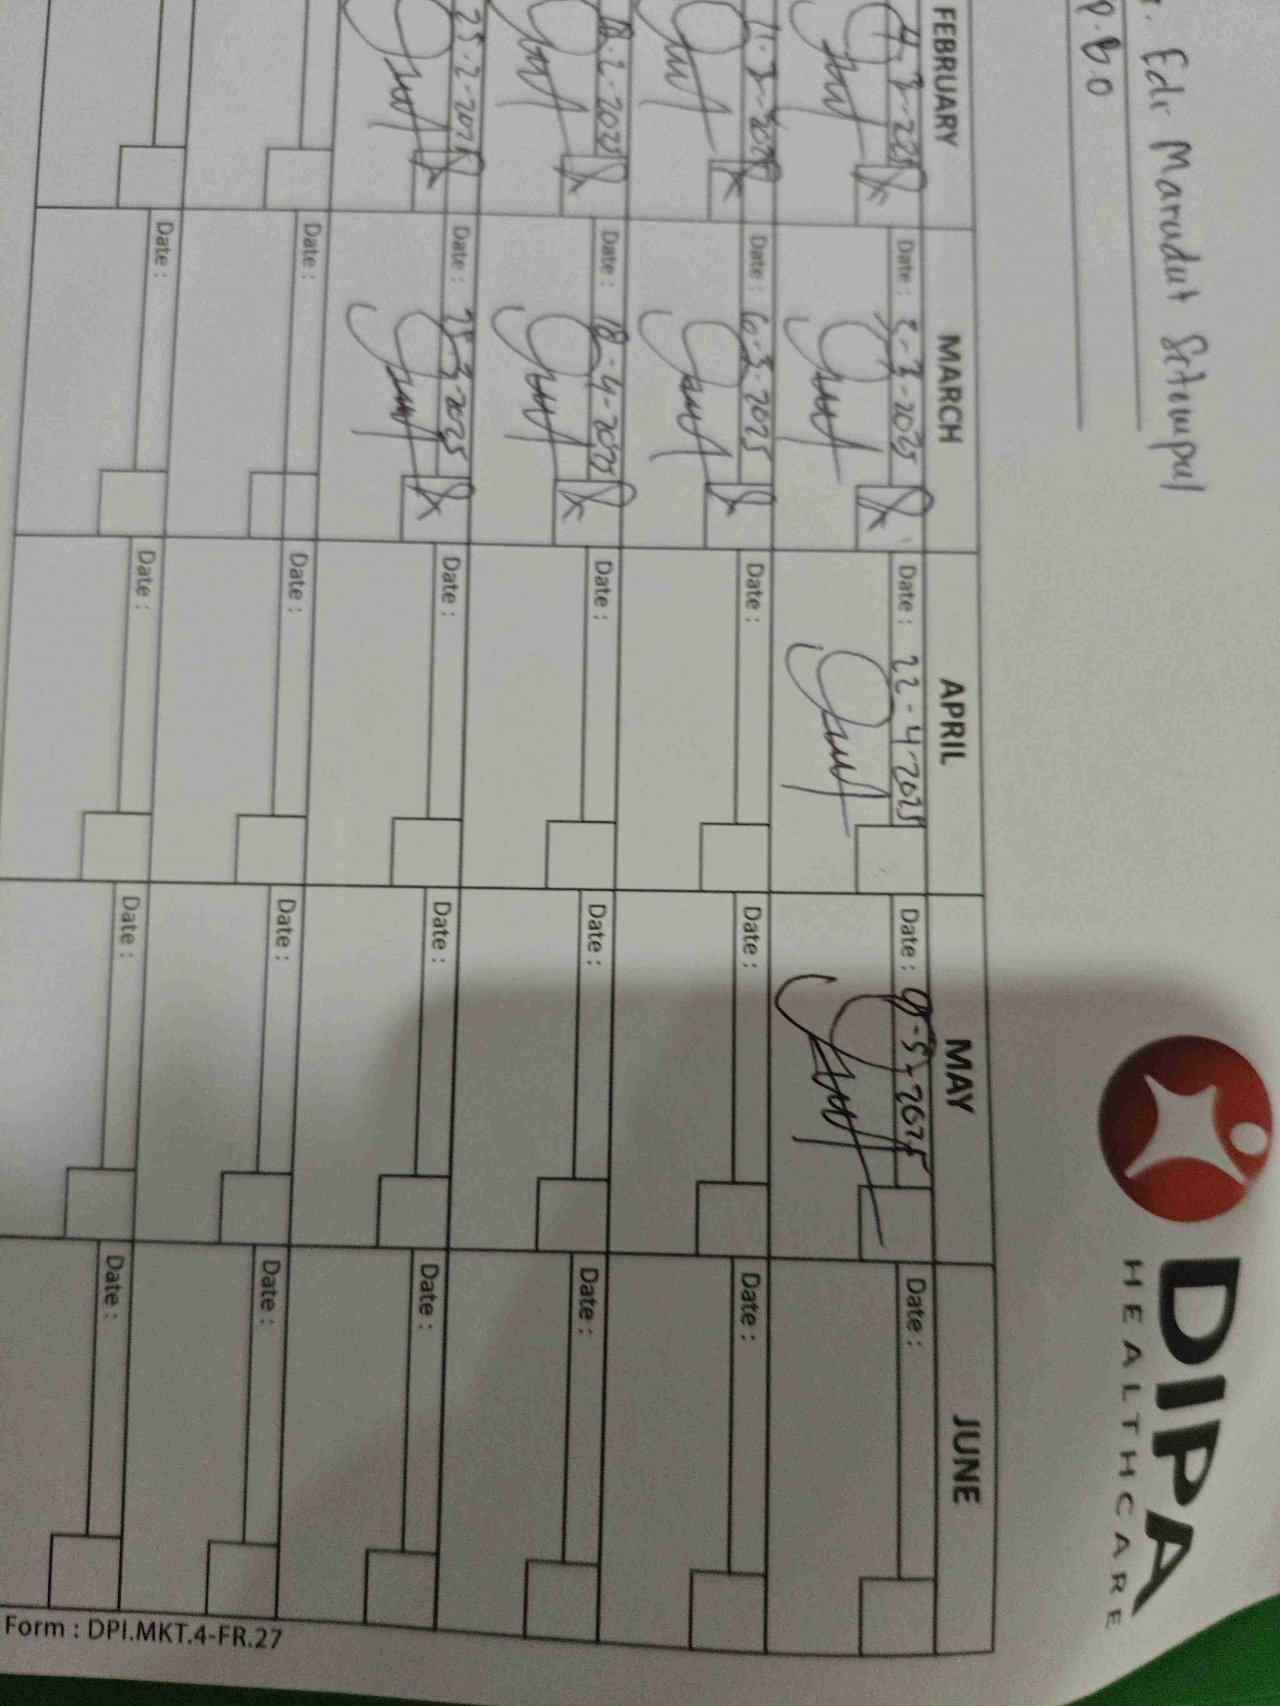 DIPA
HEALTHCARE
Edi Marudut Sitompul
P.B.O
FEBRUARY MARCH APRIL MAY JUNE
4-2-2025 Date : 3-3-2025 Date : 22-4-2025 Date : 09-5-2025 Date :
11-2-2025 Date : 6-3-2025 Date : Date : Date :
18-2-2025 Date : 18-4-2025 Date : Date : Date :
25-2-2025 Date : 25-3-2025 Date : Date : Date :
Date : Date : Date : Date :
Date : Date : Date : Date :
Form : DPI.MKT.4-FR.27